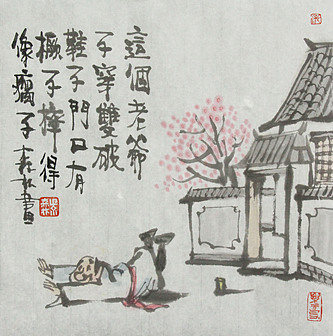 這個老爺
子穿雙破
鞋子門口有
橛子摔得
像瘸子